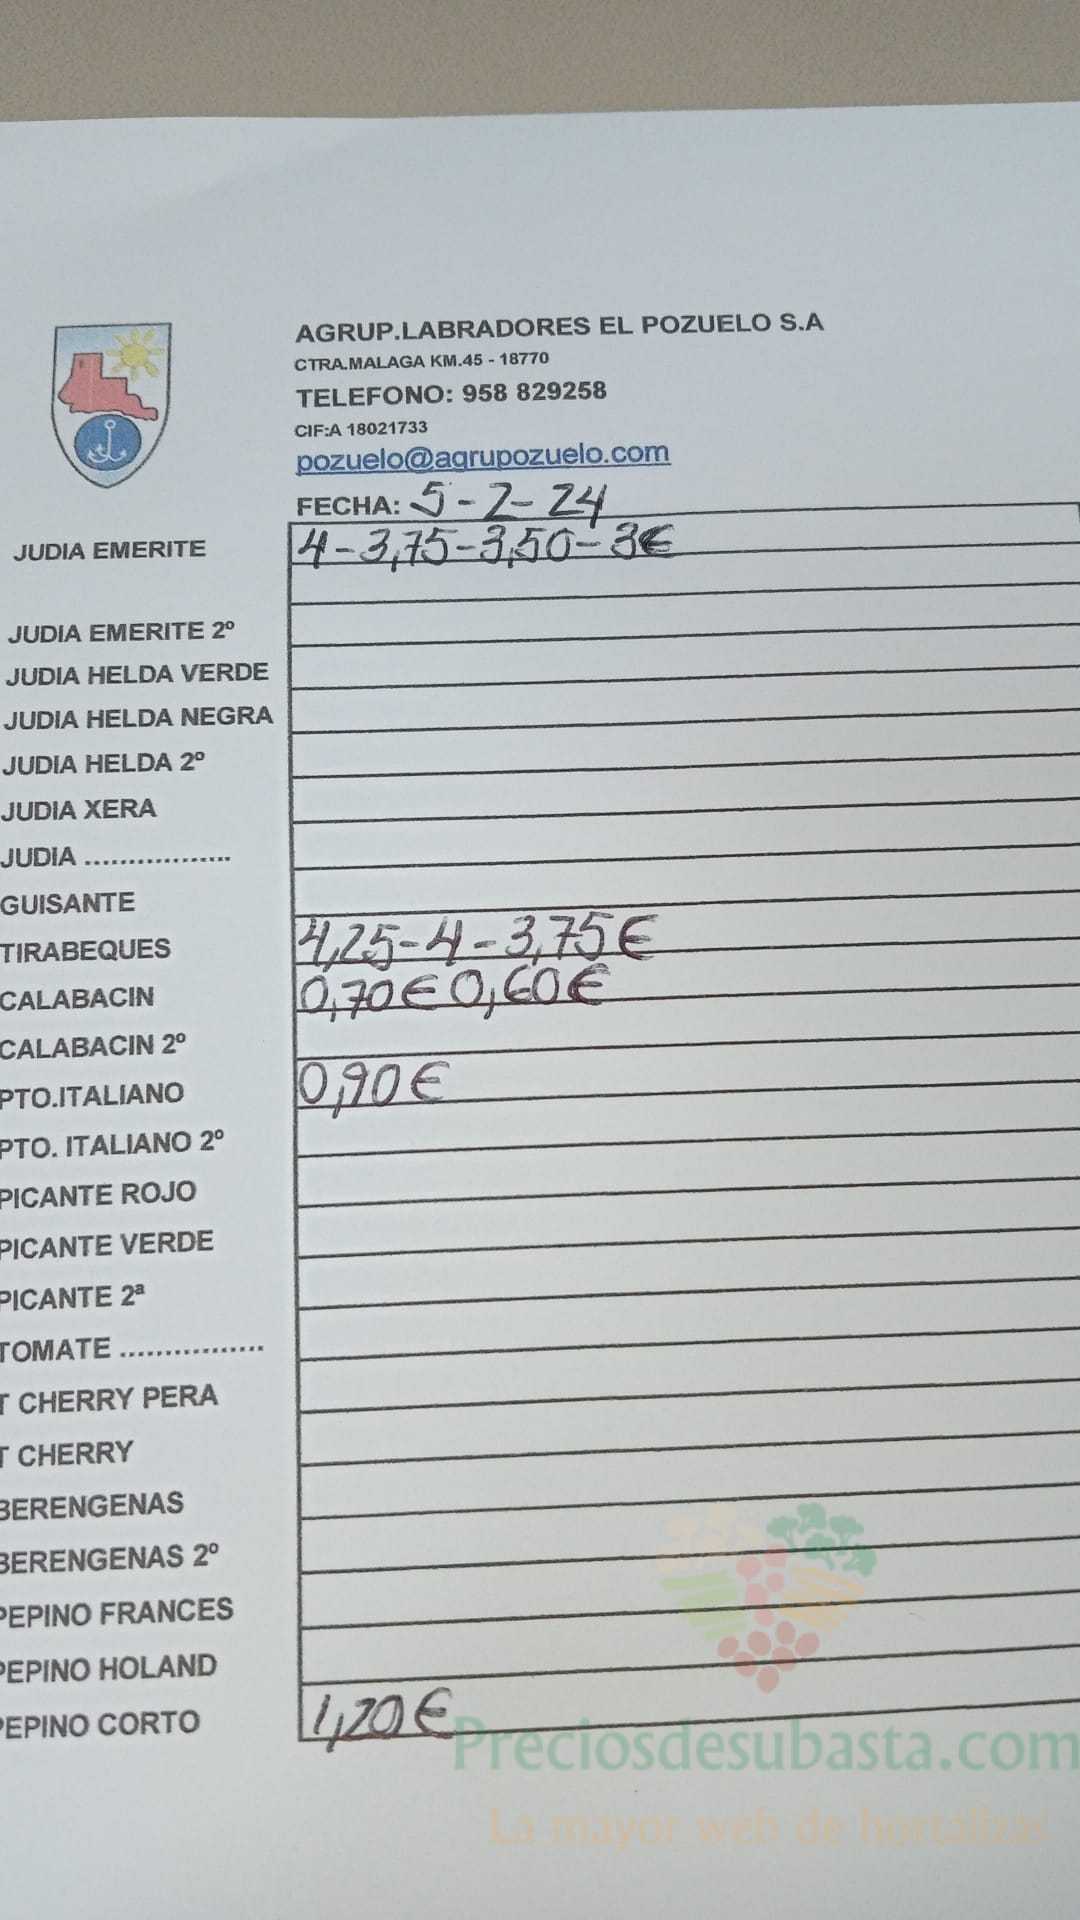 AGRUP.LABRADORES EL POZUELO S.A
CTRA.MALAGA KM.45 - 18770
TELEFONO: 958 829258
CIF:A 18021733
pozuelo@agrupozuelo.com
FECHA: 5-2-24
JUDIA EMERITE 4-3,75-3,50-3€
JUDIA EMERITE 2º
JUDIA HELDA VERDE
JUDIA HELDA NEGRA
JUDIA HELDA 2º
JUDIA XERA
JUDIA ..................
GUISANTE
TIRABEQUES 4,25-4-3,75€
CALABACIN 0,70€ 0,60€
CALABACIN 2º
PTO.ITALIANO 0,90€
PTO. ITALIANO 2º
PICANTE ROJO
PICANTE VERDE
PICANTE 2ª
TOMATE ................
T CHERRY PERA
T CHERRY
BERENGENAS
BERENGENAS 2º
PEPINO FRANCES
PEPINO HOLAND
PEPINO CORTO 1,20€
Preciosdesubasta.com
La mayor web de hortalizas